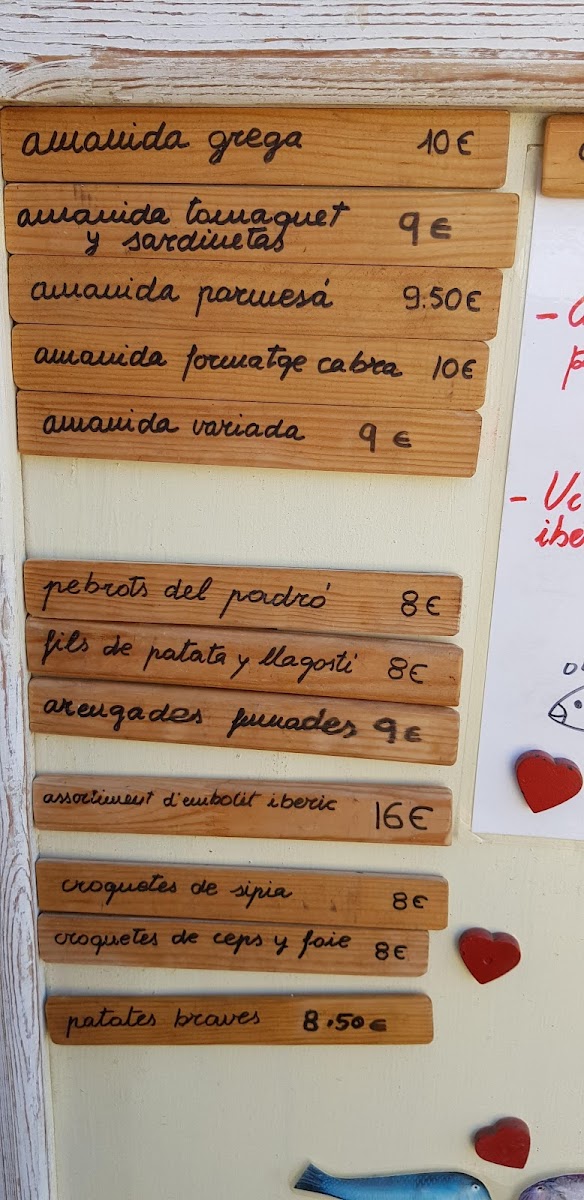 amanida grega 10€
amanida tomaquet 9€
y sardinetas
amanida parmesá 9.50€
amanida formatge cabra 10€
amanida variada 9€
pebrots del padró 8€
fils de patata y llagosti 8€
arengades fumades 9€
assortiment d'embotit iberic 16€
croquetes de sipia 8€
croquetes de ceps y foie 8€
patates braves 8.50€